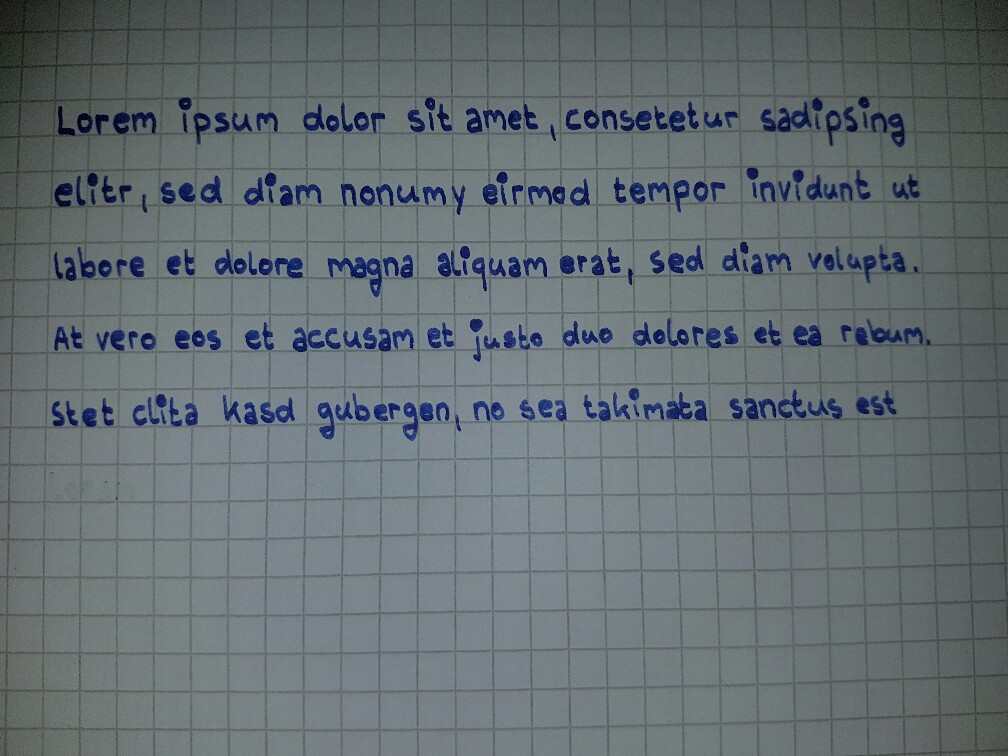 Lorem ipsum dolor sit amet, consetetur sadipsing
elitr, sed diam nonumy eirmod tempor invidunt ut
labore et dolore magna aliquam erat, sed diam volupta.
At vero eos et accusam et justo duo dolores et ea rebum.
Stet clita kasd gubergen, no sea takimata sanctus est